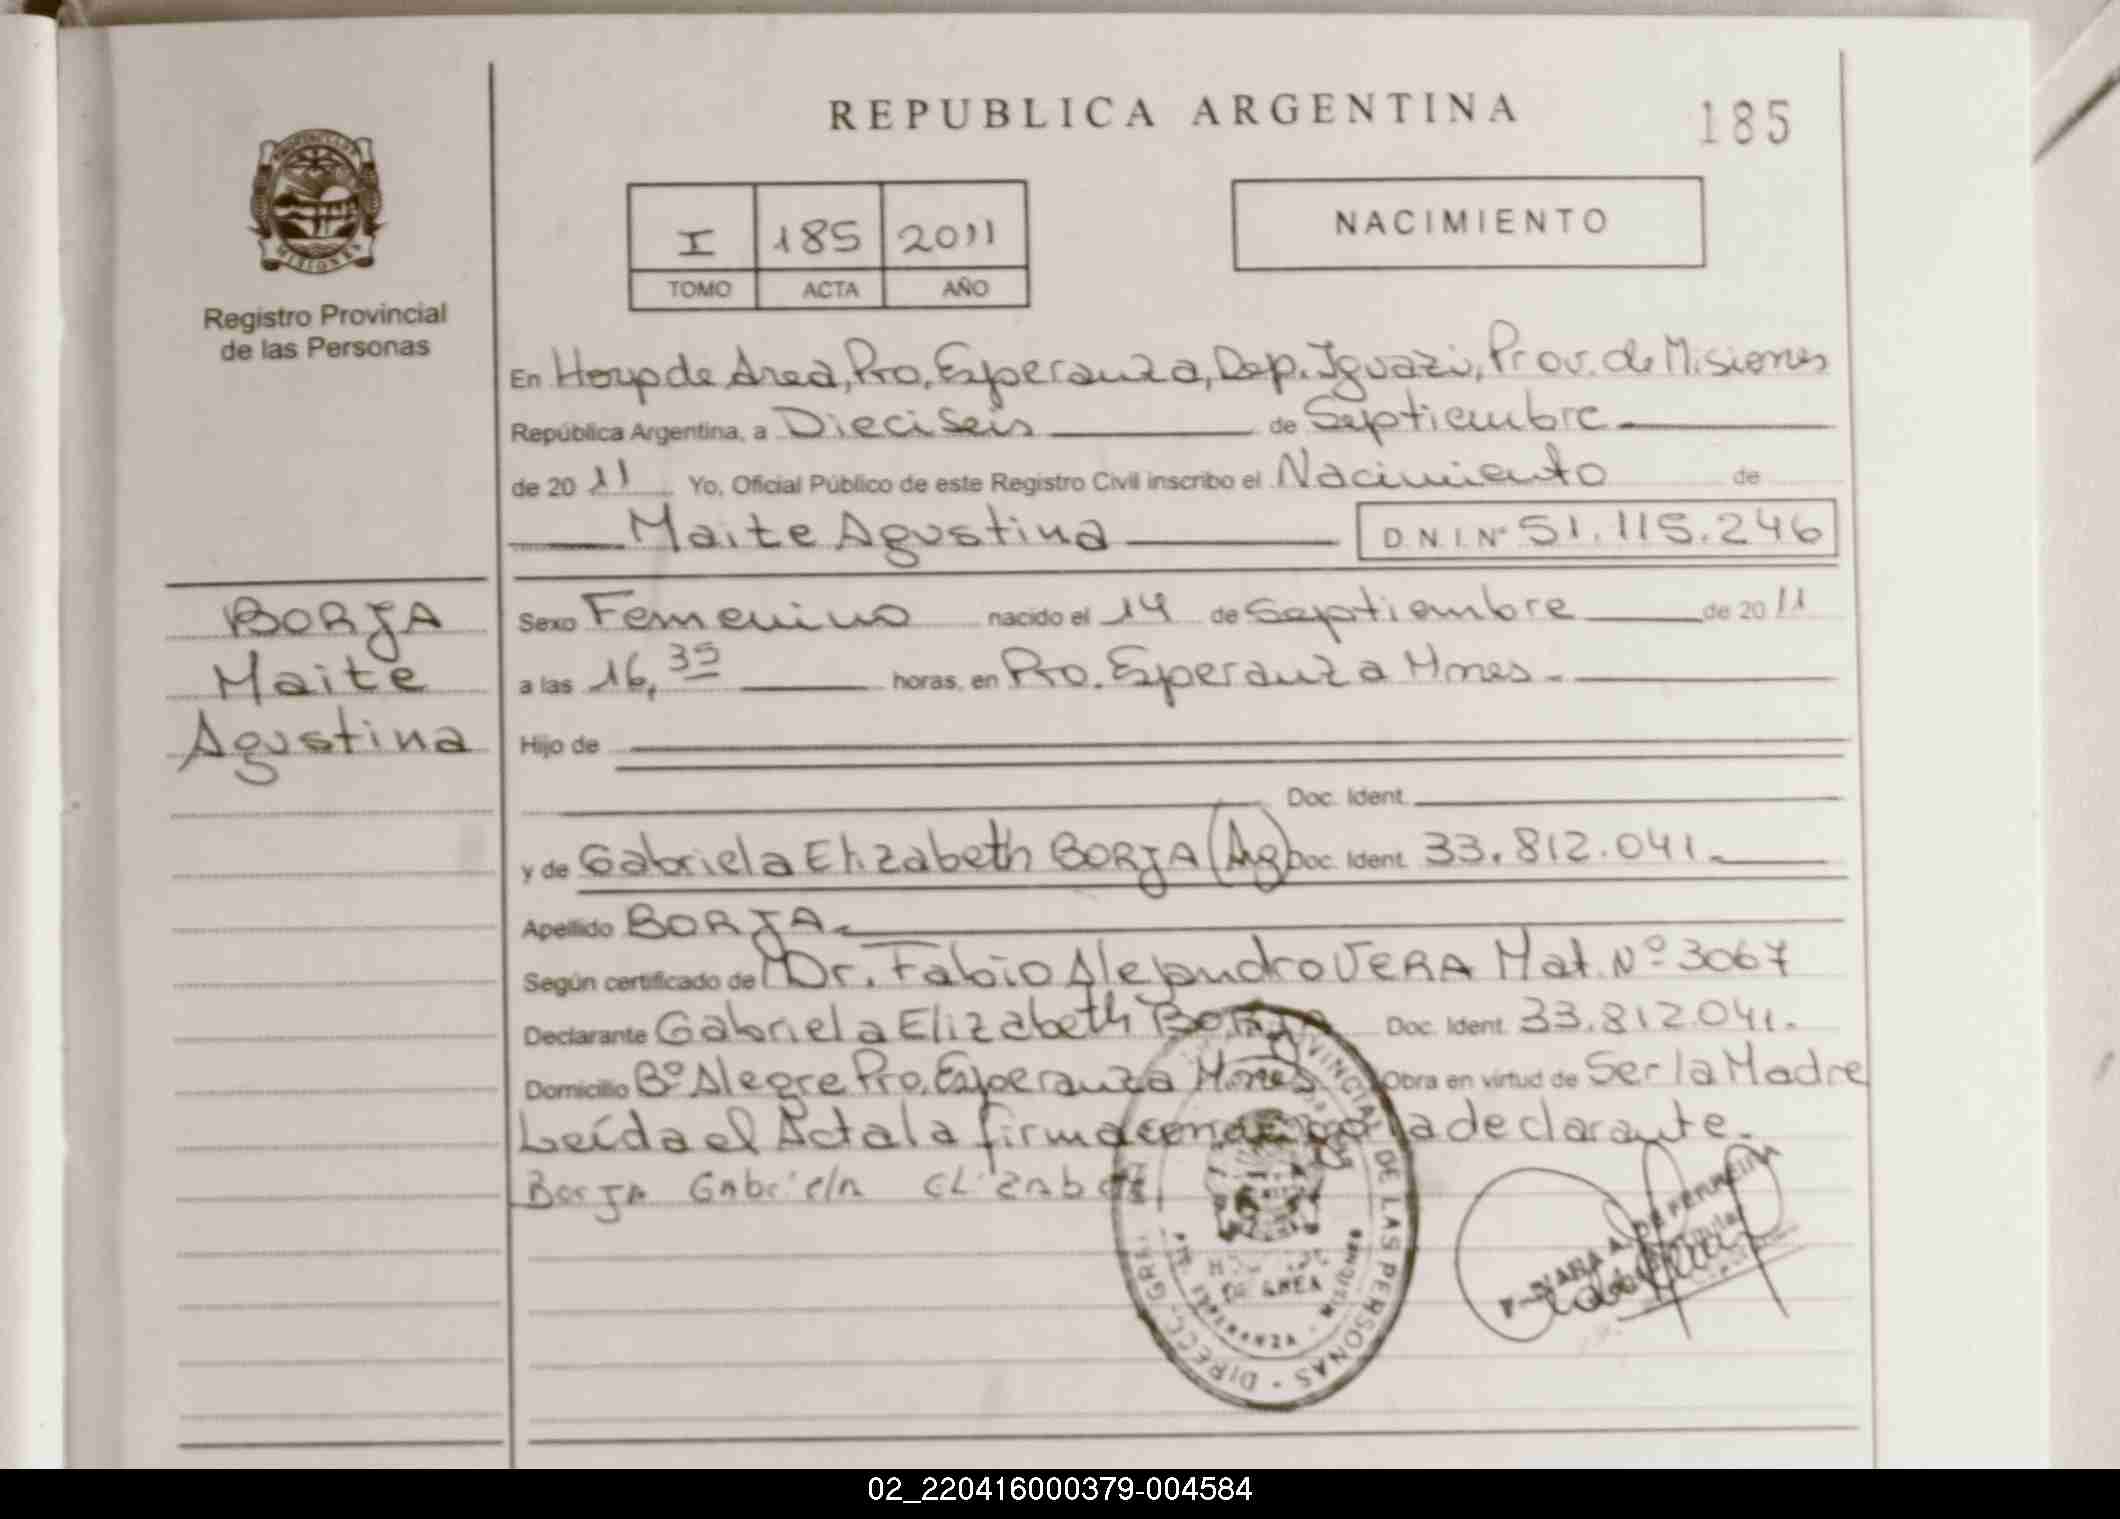 REPUBLICA ARGENTINA
185
MISIONES
Registro Provincial
de las Personas
I 185 2011
TOMO ACTA AÑO
NACIMIENTO
En Hosp de Area, Pto, Esperanza, Dep. Iguazú, Prov. de Misiones
República Argentina, a Dieciseis de Septiembre
de 2011 Yo, Oficial Público de este Registro Civil inscribo el Nacimiento de
Maite Agustina D.N.I.Nº 51.115.246
BORJA
Maite
Agustina
Sexo Femenino nacido el 14 de Septiembre de 2011
a las 16,35 horas, en Pto. Esperanza Mnes.
Hijo de
Doc. Ident.
y de Gabriela Elizabeth BORJA (Ag) Doc. Ident. 33.812.041.
Apellido BORJA.
Según certificado de Dr. Fabio Alejandro VERA Mat. Nº 3067
Declarante Gabriela Elizabeth BORJA Doc. Ident. 33.812.041.
Domicilio Bº Alegre Pto. Esperanza Mnes Obra en virtud de Ser la Madre
Leída el Acta la firma conmigo la declarante.
Borja Gabriela Elizabet
DIRECC. GRAL. PROVINCIAL DE LAS PERSONAS
DE AREA
PTO. ESPERANZA - MISIONES
DE FERREIRA
02_220416000379-004584